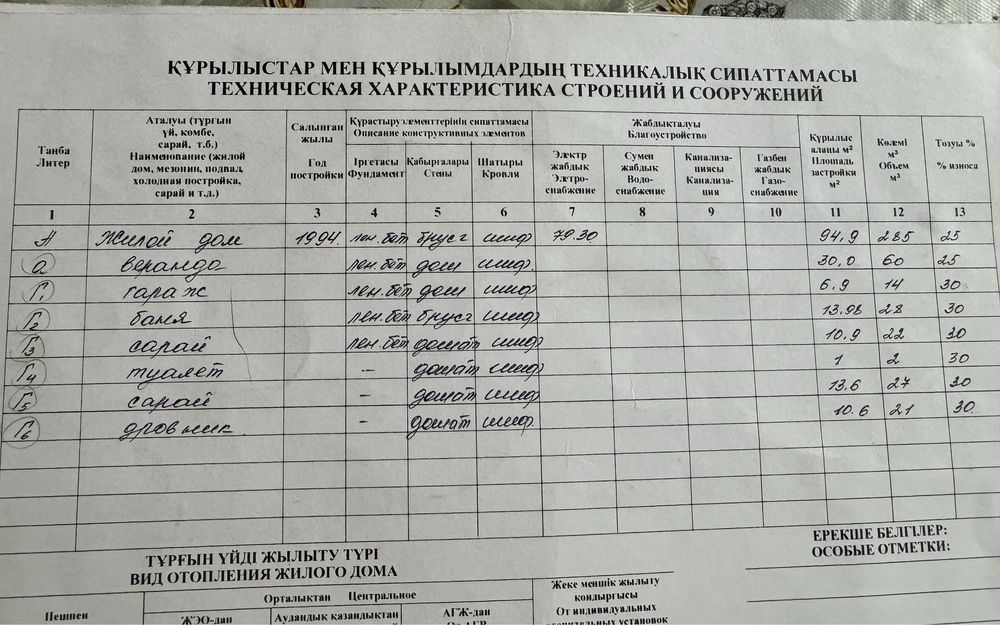 ҚҰРЫЛЫСТАР МЕН ҚҰРЫЛЫМДАРДЫҢ ТЕХНИКАЛЫҚ СИПАТТАМАСЫ
ТЕХНИЧЕСКАЯ ХАРАКТЕРИСТИКА СТРОЕНИЙ И СООРУЖЕНИЙ
Таңба Литер
Аталуы (тұрғын үй, көмбе, сарай, т.б.) Наименование (жилой дом, мезонин, подвал, холодная постройка, сарай и т.д.)
Салынған жылы Год постройки
Құрастыруэлементтерінің сипаттамасы
Описание конструктивных элементов
Іргетасы Фундамент
Қабырғалары Стены
Шатыры Кровля
Жабдықталуы
Благоустройство
Электр жабдық Элетро-снабжение
Сумен жабдық Водо-снабжение
Канализа-циясы Канализа-ция
Газбен жабдық Газо-снабжение
Құрылыс аланы м² Площадь застройки м²
Көлемі м³ Объем м³
Тозуы % % износа
1 2 3 4 5 6 7 8 9 10 11 12 13
А Жилой дом 1994. лен.бет брусг шиф 79.30 94,9 285 25
а веранда лен.бет дощ шиф. 30,0 60 25
Г1 гараж лен.бет дощ шиф 6.9 14 30
Г2 баня лен.бет брусг шиф 13,98 28 30
Г3 сарай лен.бет дощат шиф 10,9 22 30
Г4 туалет – дощат шиф 1 2 30
Г5 сарай – дощат шиф 13.6 27 30
Г6 дровник – дощат шиф 10.6 21 30
ТҰРҒЫН ҮЙДІ ЖЫЛЫТУ ТҮРІ
ВИД ОТОПЛЕНИЯ ЖИЛОГО ДОМА
ЕРЕКШЕ БЕЛГІЛЕР:
ОСОБЫЕ ОТМЕТКИ:
Пешпен
Орталықтан Центральное
ЖЭО-дан
Аудандық қазандықтан
АГЖ-дан
От АГВ
Жеке меншік жылыту
кондырғысы
От индивидуальных
отопительных установок